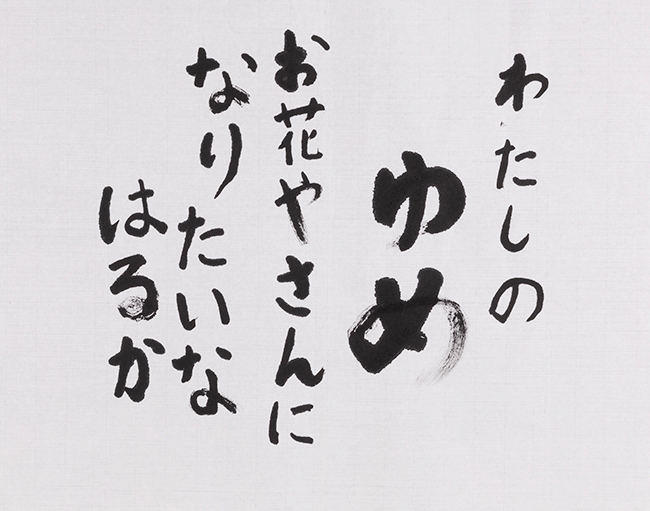 わたしの
ゆめ
お花やさんに
なりたいな
はるか